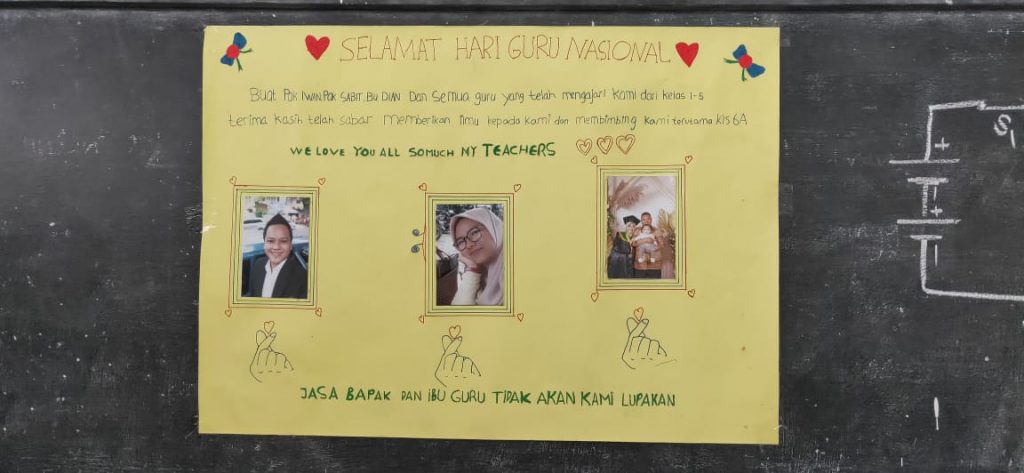 SELAMAT HARI GURU NASIONAL
Buat PAK IWAN, PAK SABIT, BU DIAN Dan Semua guru yang telah mengajari kami dari kelas 1-5
terima kasih telah sabar memberikan ilmu kepada kami dan membimbing kami terutama kls 6A
WE LOVE YOU ALL SOMUCH MY TEACHERS
JASA BAPAK DAN IBU GURU TIDAK AKAN KAMI LUPAKAN
+
S1
+